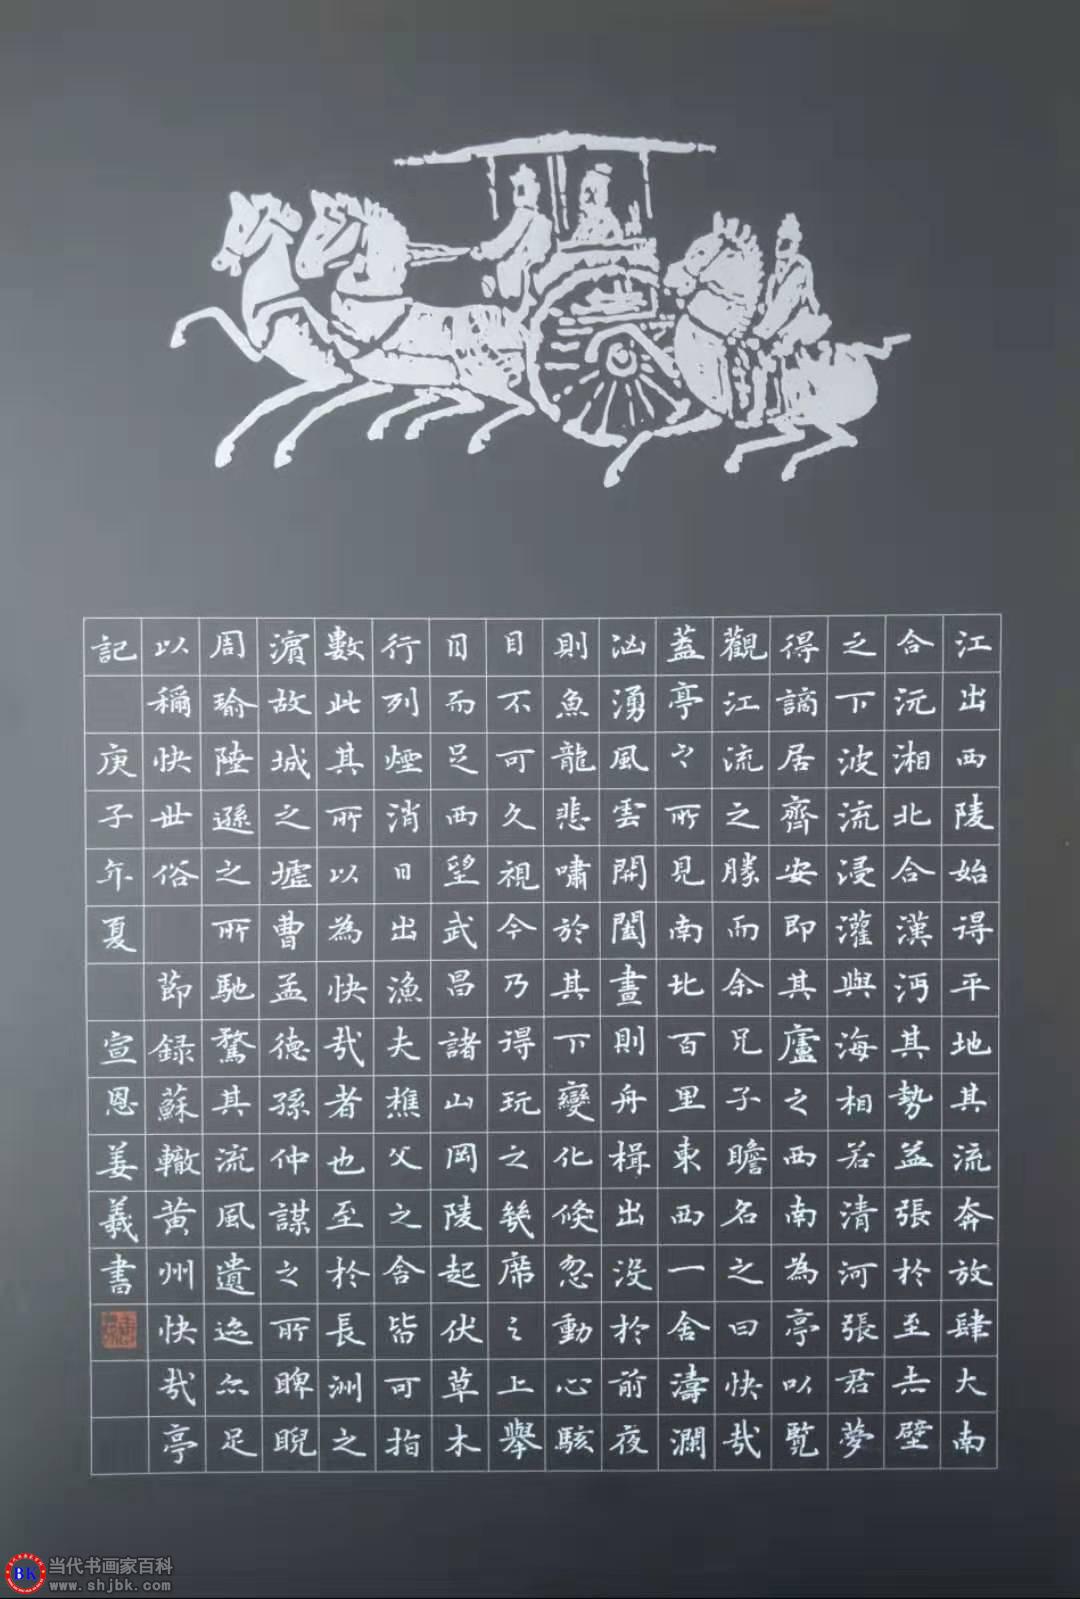 江出西陵始得平地其流奔放肆大南
合沅湘北合漢沔其勢益張於至赤壁
之下波流浸灌與海相若清河張君夢
得謫居齊安即其廬之西南為亭以覽
觀江流之勝而余兄子瞻名之曰快哉
蓋亭之所見南北百里東西一舍濤瀾
洶湧風雲開闔晝則舟楫出没於前夜
則魚龍悲嘯於其下變化倏忽動心駭
目不可久視今乃得玩之幾席之上舉
目而足西望武昌諸山岡陵起伏草木
行列煙消日出漁夫樵父之舍皆可指
數此其所以為快哉者也至於長洲之
濱故城之墟曹孟德孫仲謀之所睥睨
周瑜陸遜之所馳騖其流風遺迹亦足
以稱快世俗 節録蘇轍黄州快哉亭
記 庚子年夏 宣恩姜義書
当代书画家百科
www.shjbk.com
BK